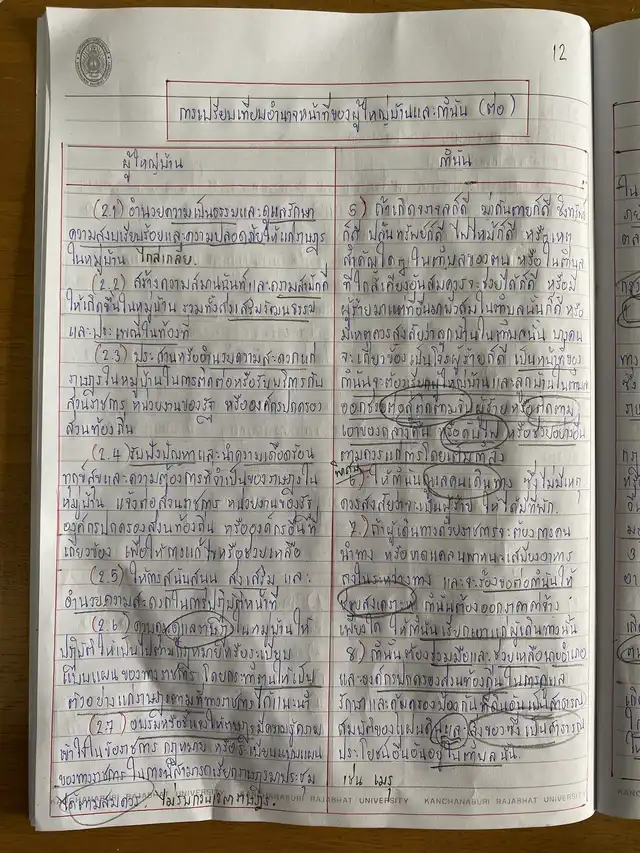 12
การเปรียบเทียบอำนาจหน้าที่ของผู้ใหญ่บ้านและกำนัน (ต่อ)
ผู้ใหญ่บ้าน
(2.1) อำนวยความเป็นธรรมและดูแลรักษา
ความสงบเรียบร้อยและความปลอดภัยให้แก่ราษฎร
ในหมู่บ้าน
(2.2) สร้างความสมานฉันท์และความสามัคคี
ให้เกิดขึ้นในหมู่บ้าน รวมทั้งส่งเสริมวัฒนธรรม
และประเพณีในท้องที่
(2.3) ประสานหรืออำนวยความสะดวกแก่
ราษฎรในหมู่บ้านในการติดต่อหรือรับบริการกับ
ส่วนราชการ หน่วยงานของรัฐ หรือองค์กรปกครอง
ส่วนท้องถิ่น
(2.4) รับฟังปัญหาและนำความเดือดร้อน
ทุกข์สุขและความต้องการที่จำเป็นของราษฎรใน
หมู่บ้าน แจ้งต่อส่วนราชการ หน่วยงานของรัฐ
องค์กรปกครองส่วนท้องถิ่น หรือองค์กรอื่นที่
เกี่ยวข้อง เพื่อให้การแก้ไขหรือช่วยเหลือ
(2.5) ให้การสนับสนุน ส่งเสริม และ
อำนวยความสะดวกในการปฏิบัติหน้าที่
(2.6) ควบคุมดูแลราษฎรในหมู่บ้านให้
ปฏิบัติให้เป็นไปตามกฎหมายหรือระเบียบ
แบบแผนของทางราชการ โดยกระทำตนให้เป็น
ตัวอย่างแก่ราษฎรตามที่ทางราชการได้แนะนำ
(2.7) อบรมหรือชี้แจงให้ราษฎรมีความรู้ความ
เข้าใจในข้อราชการ กฎหมาย หรือระเบียบแบบแผน
ของทางราชการ ในการนี้สามารถเรียกราษฎรมาประชุม
ได้ตามสมควร.
กำนัน
5) ถ้าเกิดจลาจลก็ดี ฆ่ากันตายก็ดี ชิงทรัพย์
ก็ดี ปล้นทรัพย์ก็ดี ไฟไหม้ก็ดี หรือเหตุ
สำคัญใดๆ ในตำบลของตน หรือในตำบล
ที่ใกล้เคียงอันสมควรจะช่วยได้ก็ดี หรือมี
ผู้ร้ายมาแต่ที่อื่นมาพักในตำบลนั้นก็ดี หรือ
มีเหตุควรสงสัยว่าลูกบ้านในตำบลนั้น บางคน
จะเกี่ยวข้องเป็นโจรผู้ร้ายก็ดี เป็นหน้าที่ของ
กำนันจะต้องเรียกผู้ใหญ่บ้านและลูกบ้านในตำบล
ออกช่วยต่อสู้ติดตามจับผู้ร้ายหรือติดตาม
เอาของกลางคืน หรือดับไฟ หรือช่วยอย่างอื่น
ตามควรแก่การโดยเต็มกำลัง
6) ให้กำนันดูแลคนเดินทาง ซึ่งไม่มีเหตุ
ควรสงสัยว่าจะเป็นผู้ร้าย ให้ได้มีที่พัก.
7.) ถ้าผู้เดินทางด้วยราชการจะต้องการคน
นำทาง หรือขาดแคลนพาหนะเสบียงอาหาร
ลงในระหว่างทาง และจะร้องขอต่อกำนันให้
ช่วยสงเคราะห์ กำนันต้อง
เพียงใด ให้กำนันเรียกเอาแก่ผู้เดินทางนั้น
8) กำนันต้องร่วมมือและช่วยเหลือนายอำเภอ
และองค์กรปกครองส่วนท้องถิ่นในการดูแล
รักษาและคุ้มครองป้องกันที่ดินอันเป็นสาธารณ
สมบัติของแผ่นดินและสิ่งของซึ่งเป็นสาธารณ
ประโยชน์อื่นอันอยู่ในตำบลนั้น.
เช่น เมรุ
KANCHANABURI RAJABHAT UNIVERSITY KANCHANABURI RAJABHAT UNIVERSITY